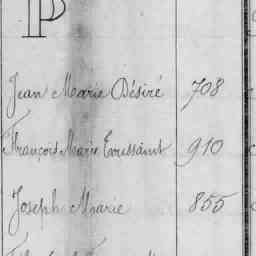 P
Jean Marie Désiré 708
François Marie Toussaint 910
Joseph Marie 855